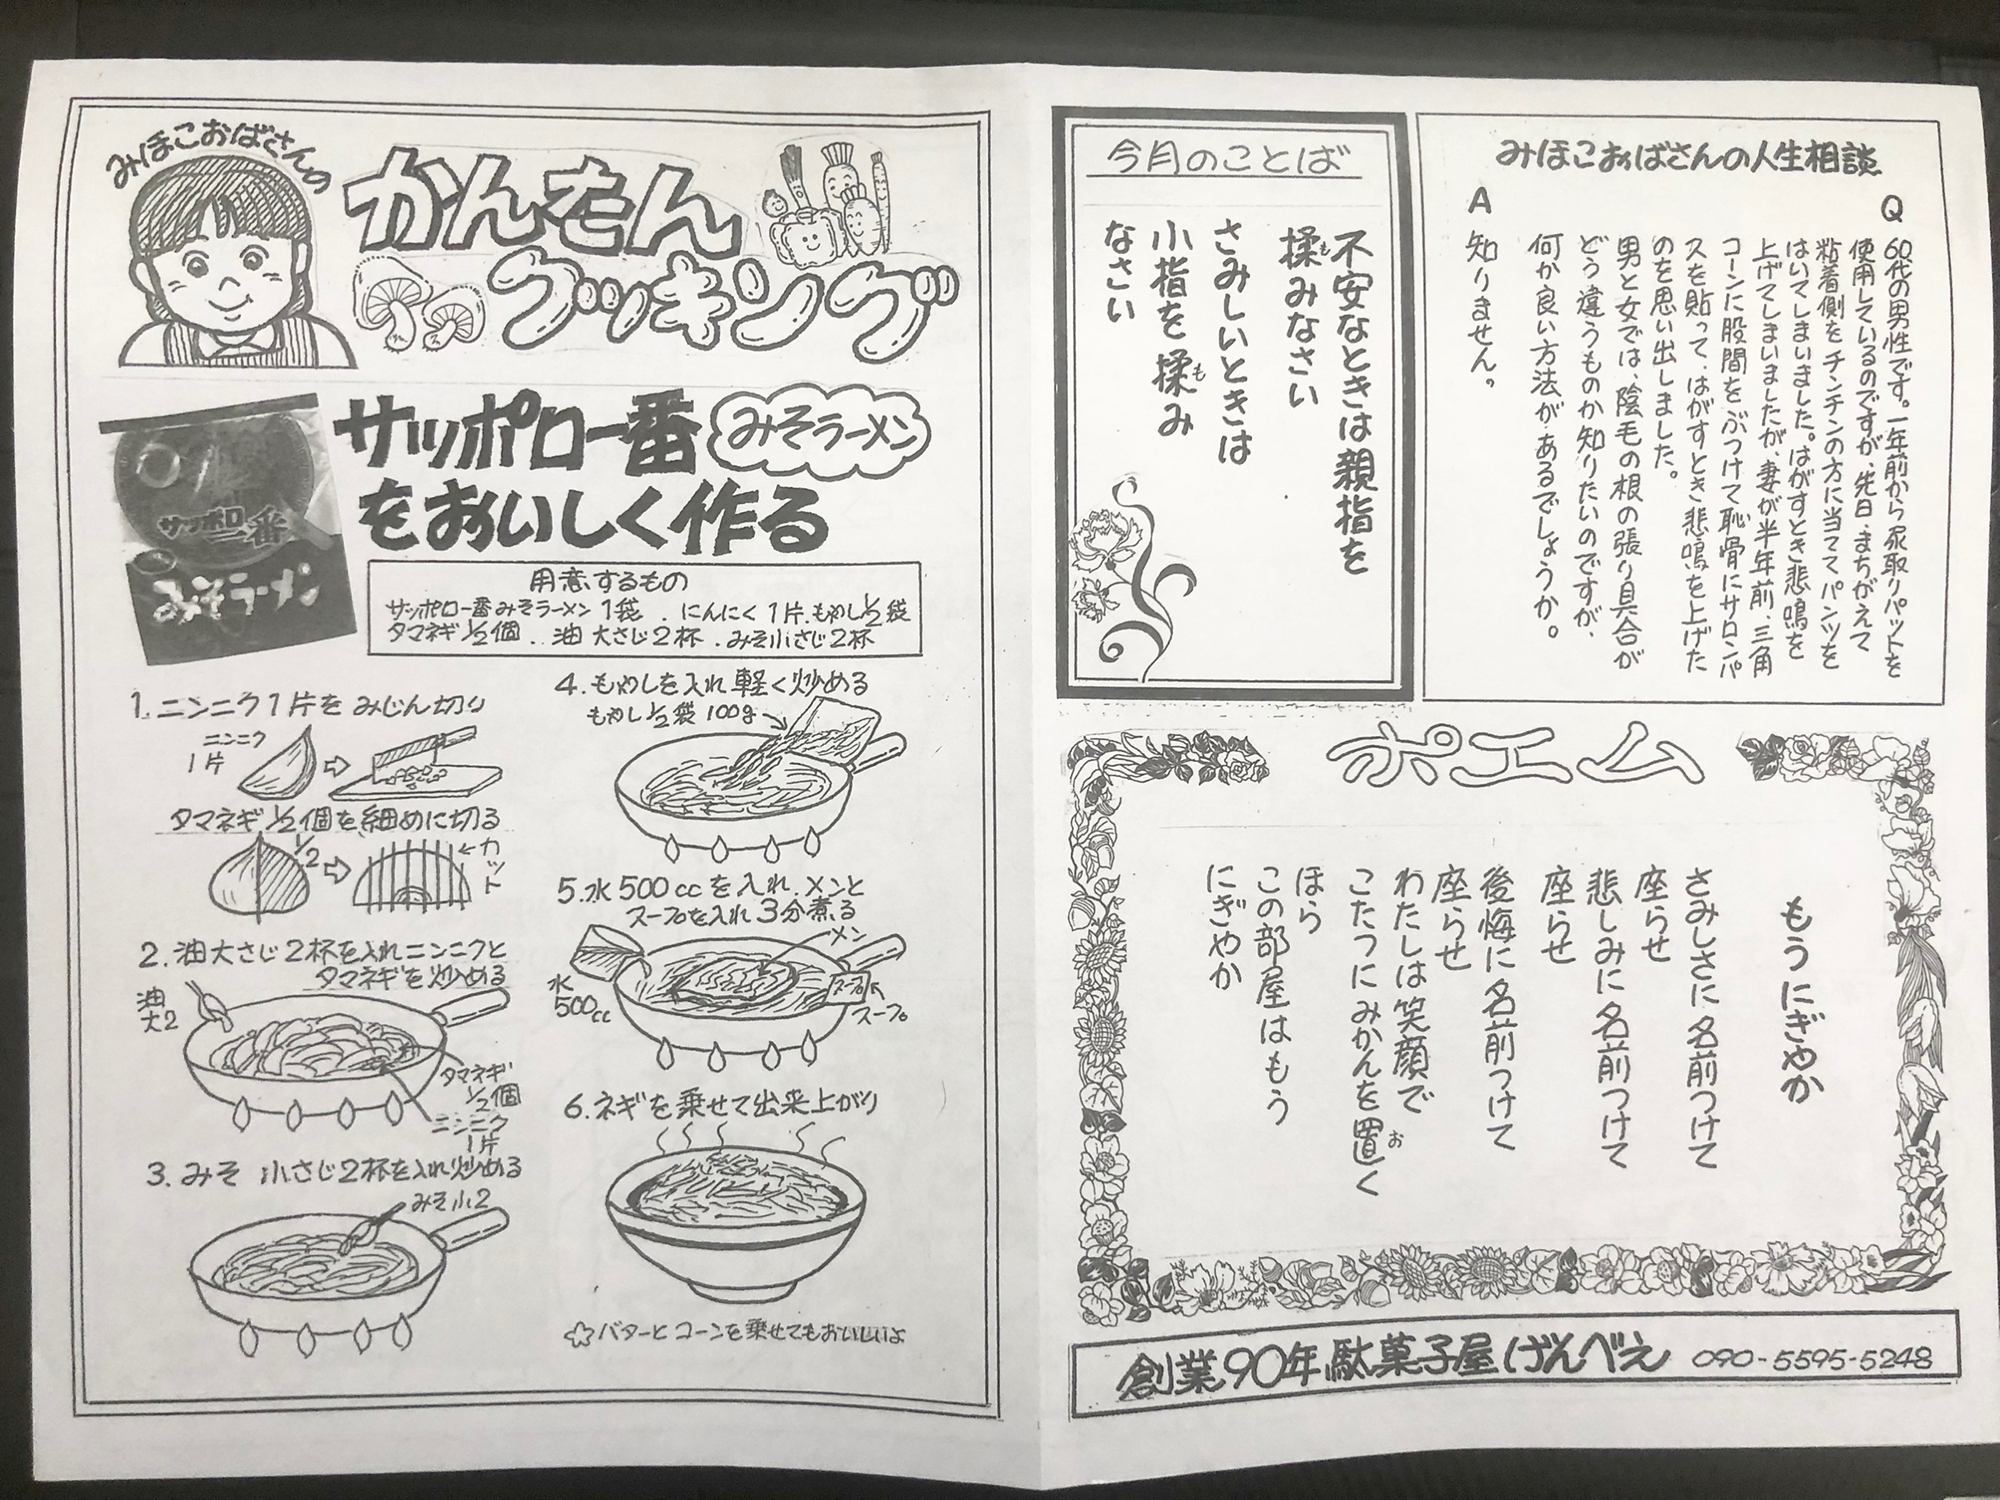 みほこおばさんの
かんたん
クッキング
サッポロ一番
みそラーメン
をおいしく作る
サッポロ
一番
みそラーメン
用意するもの
サッポロ一番みそラーメン1袋．にんにく1片．もやし1/2袋
タマネギ1/2個．油 大さじ2杯．みそ小さじ2杯
1.ニンニク1片をみじん切り
ニンニク
1片
タマネギ1/2個を細めに切る
1/2
カット
2.油大さじ2杯を入れニンニクと
タマネギを炒める
油
大2
タマネギ
1/2個
ニンニク
1片
3.みそ 小さじ2杯を入れ炒める
みそ小2
4.もやしを入れ軽く炒める
もやし1/2袋 100g
5.水500ccを入れ.メンと
スープを入れ3分煮る
メン
水
500cc
スープ
スープ
6.ネギを乗せて出来上がり
☆バターとコーンを乗せてもおいしいよ
みほこおばさんの人生相談
Q
60代の男性です。一年前から尿取りパットを
使用しているのですが、先日、まちがえて
粘着側をチンチンの方に当ててパンツを
はいてしまいました。はがすとき悲鳴を
上げてしまいましたが、妻が半年前、三角
コーンに股間をぶつけて恥骨にサロンパ
スを貼って、はがすとき悲鳴を上げた
のを思い出しました。
男と女では、陰毛の根の張り具合が
どう違うものか知りたいのですが、
何か良い方法があるでしょうか。
A
知りません。
今月のことば
不安なときは親指を
揉みなさい
も
さみしいときは
小指を揉み
も
なさい
ポエム
もうにぎやか
さみしさに名前つけて
座らせ
悲しみに名前つけて
座らせ
後悔に名前つけて
座らせ
わたしは笑顔で
こたつにみかんを置く
お
ほら
この部屋はもう
にぎやか
創業90年駄菓子屋げんべえ 090-5595-5248